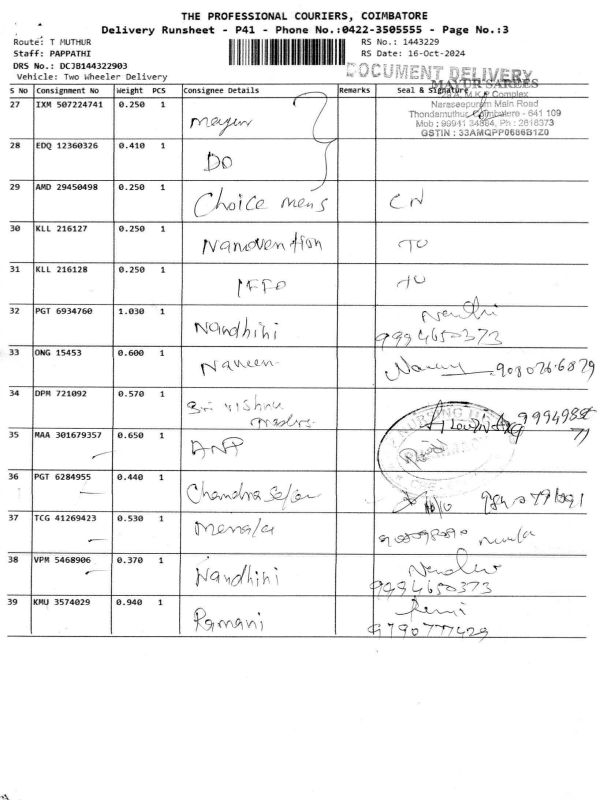 THE PROFESSIONAL COURIERS, COIMBATORE
Delivery Runsheet - P41 - Phone No.:0422-3505555 - Page No.:3
Route: T MUTHUR RS No.: 1443229
Staff: PAPPATHI RS Date: 16-Oct-2024
DRS No.: DCJB144322903
Vehicle: Two Wheeler Delivery
DOCUMENT DELIVERY
MAYUR SAREES
M.K.P. Complex
Naraseepuram Main Road
Thondamuthur, Coimbatore - 641 109
Mob : 99941 34884, Ph : 2618373
GSTIN : 33AMQPP0686B1Z0
S No Consignment No Weight PCS Consignee Details Remarks Seal & Signature
27 IXM 507224741 0.250 1 Mayur
28 EDQ 12360326 0.410 1 DO
29 AMD 29450498 0.250 1 Choice mens CN
30 KLL 216127 0.250 1 Nanovention TO
31 KLL 216128 0.250 1 IFFO TO
32 PGT 6934760 1.030 1 Nandhini Nandhi
9994650373
33 ONG 15453 0.600 1 Naveen 908076 6879
34 DPM 721092 0.570 1 Sri Vishnu
Traders
35 MAA 301679357 0.650 1 ANP
36 PGT 6284955 0.440 1 Chandra
37 TCG 41269423 0.530 1 Menaka
38 VPM 5468906 0.370 1 Nandhini
9994650373
39 KMU 3574029 0.940 1 Ramani Remi
9790777429